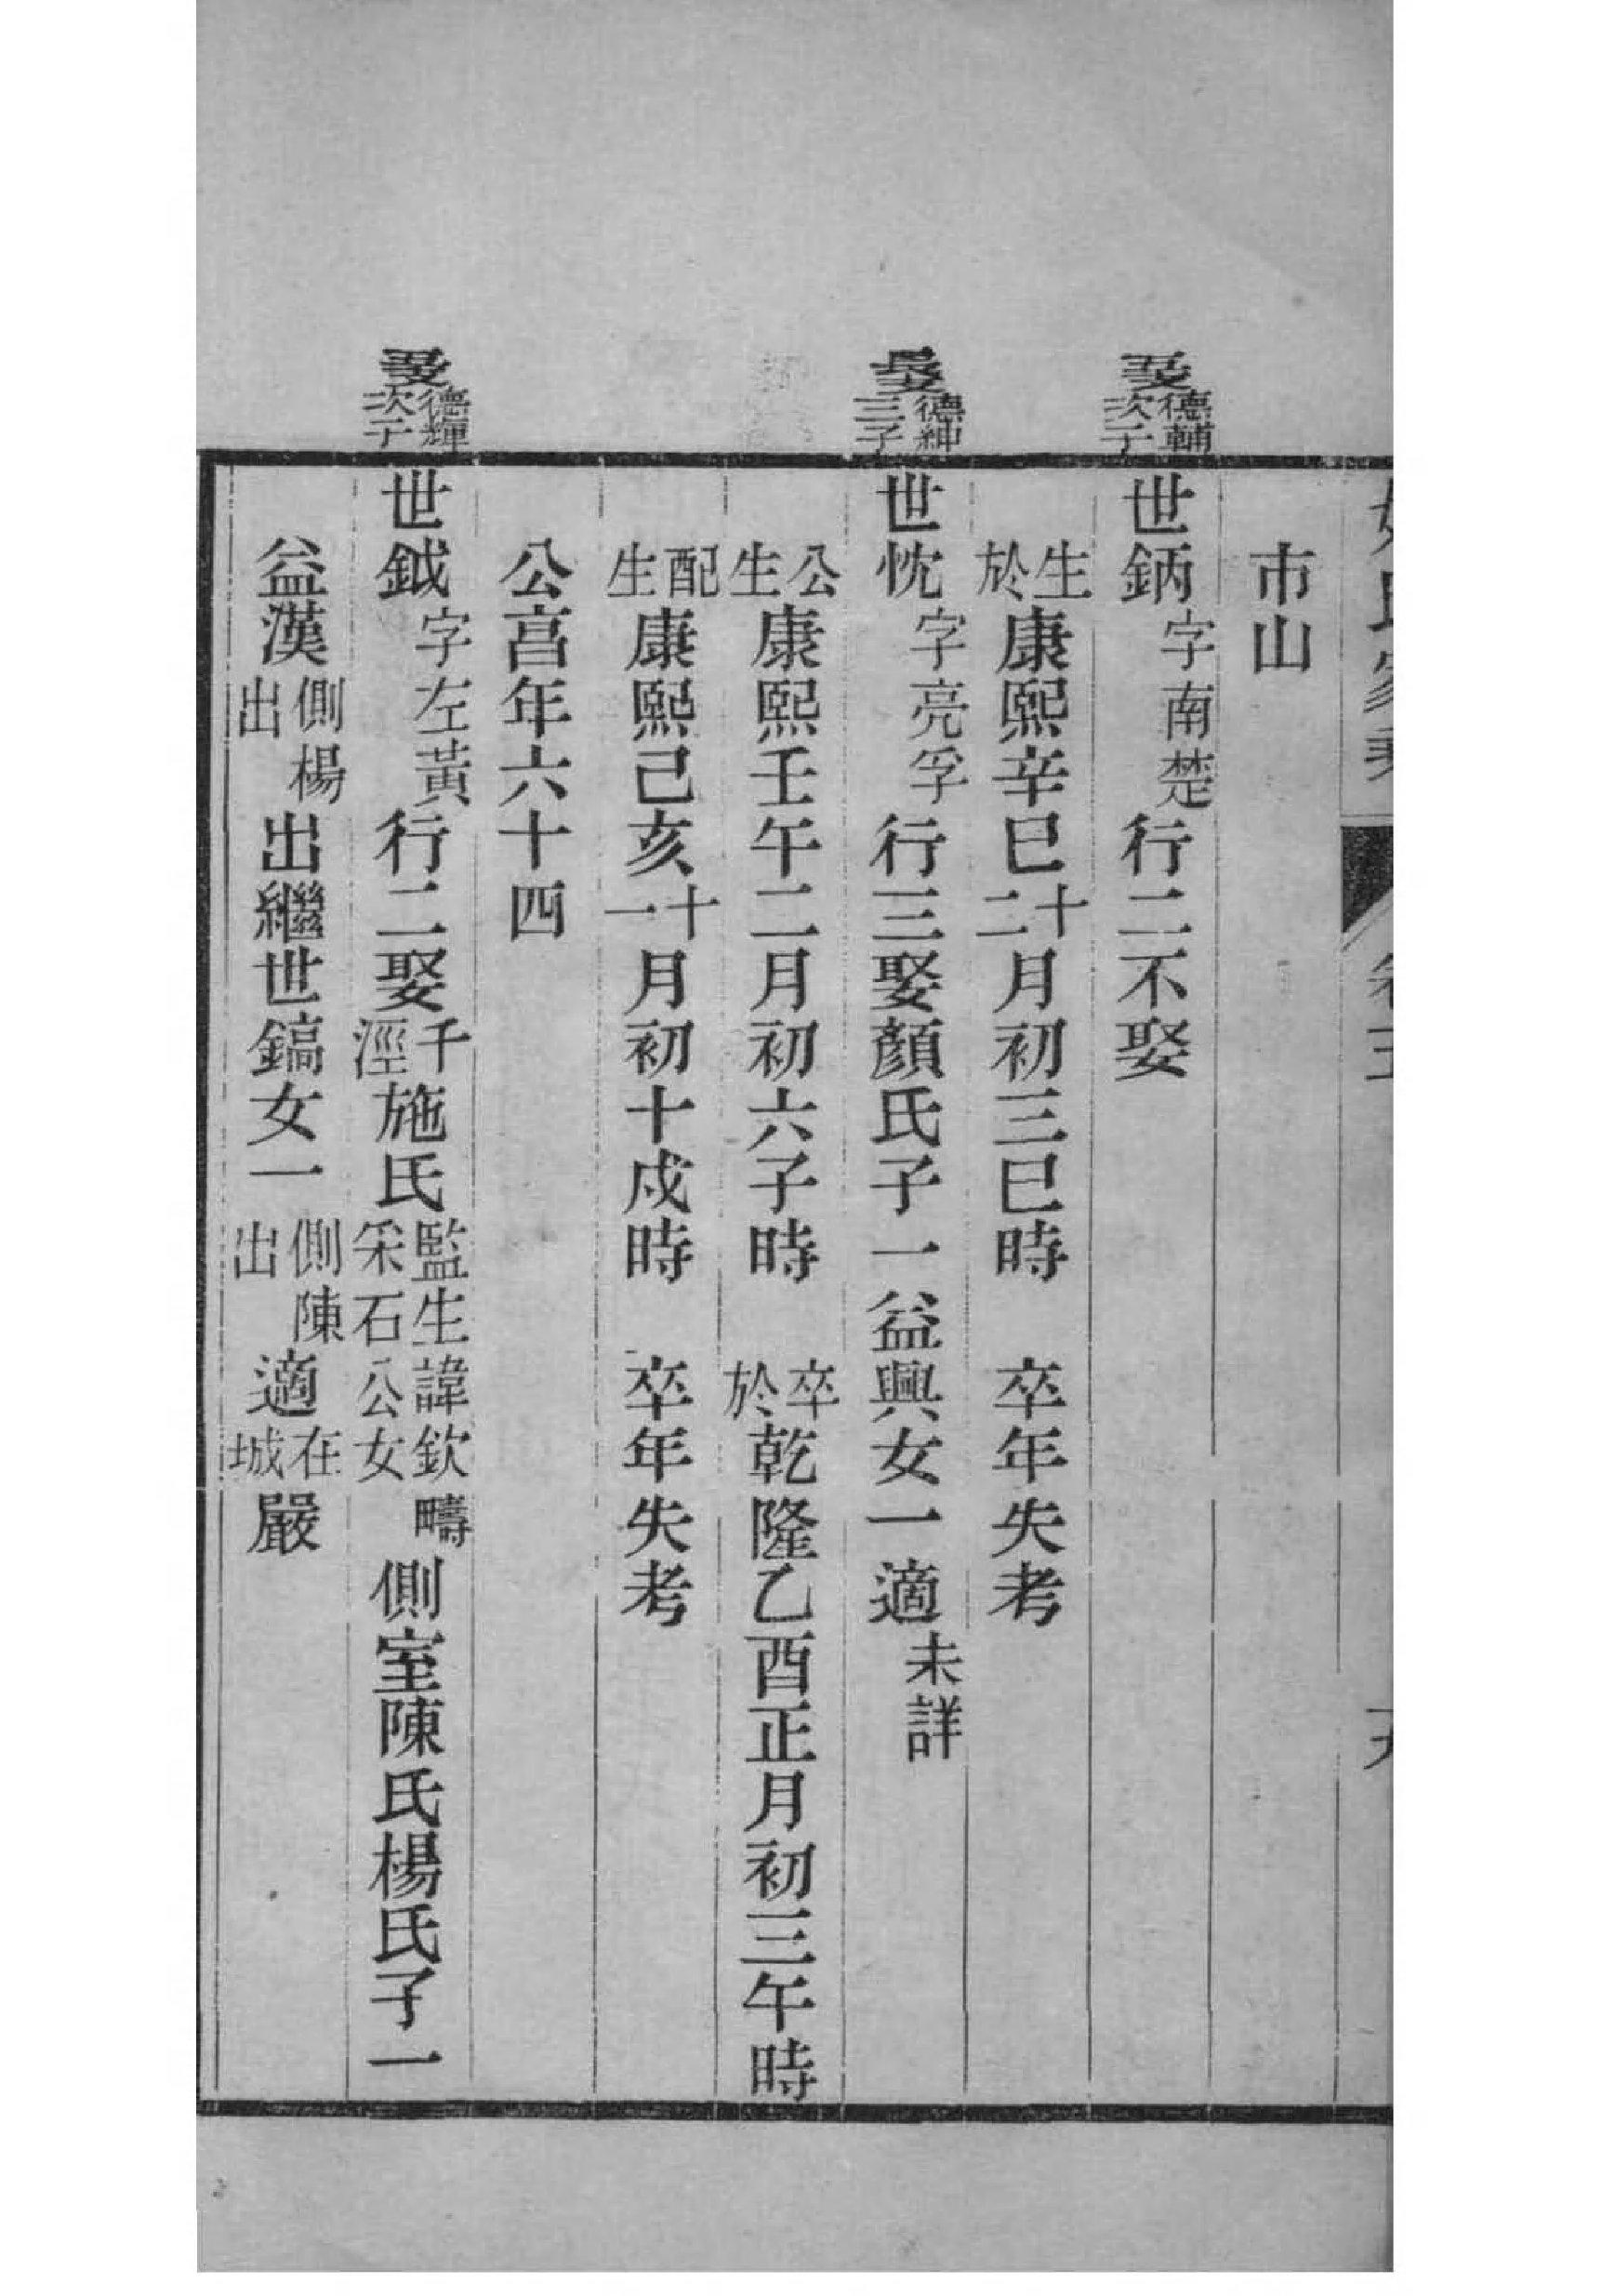 市山
德輔次子
世鈵字南楚行二不娶
生於康熙辛巳十二月初三巳時 卒年失考
德紳三子
世忱字亮孚行三娶顏氏子一益興女一適未詳
公生康熙壬午二月初六子時 卒於乾隆乙酉正月初三午時
配生康熙己亥十一月初十戌時 卒年失考
公享年六十四
德輝次子
世鉞字左黃行二娶千涇施氏監生諱欽疇采石公女側室陳氏楊氏子一
益漢側楊出出繼世鎬女一側陳出適在城嚴